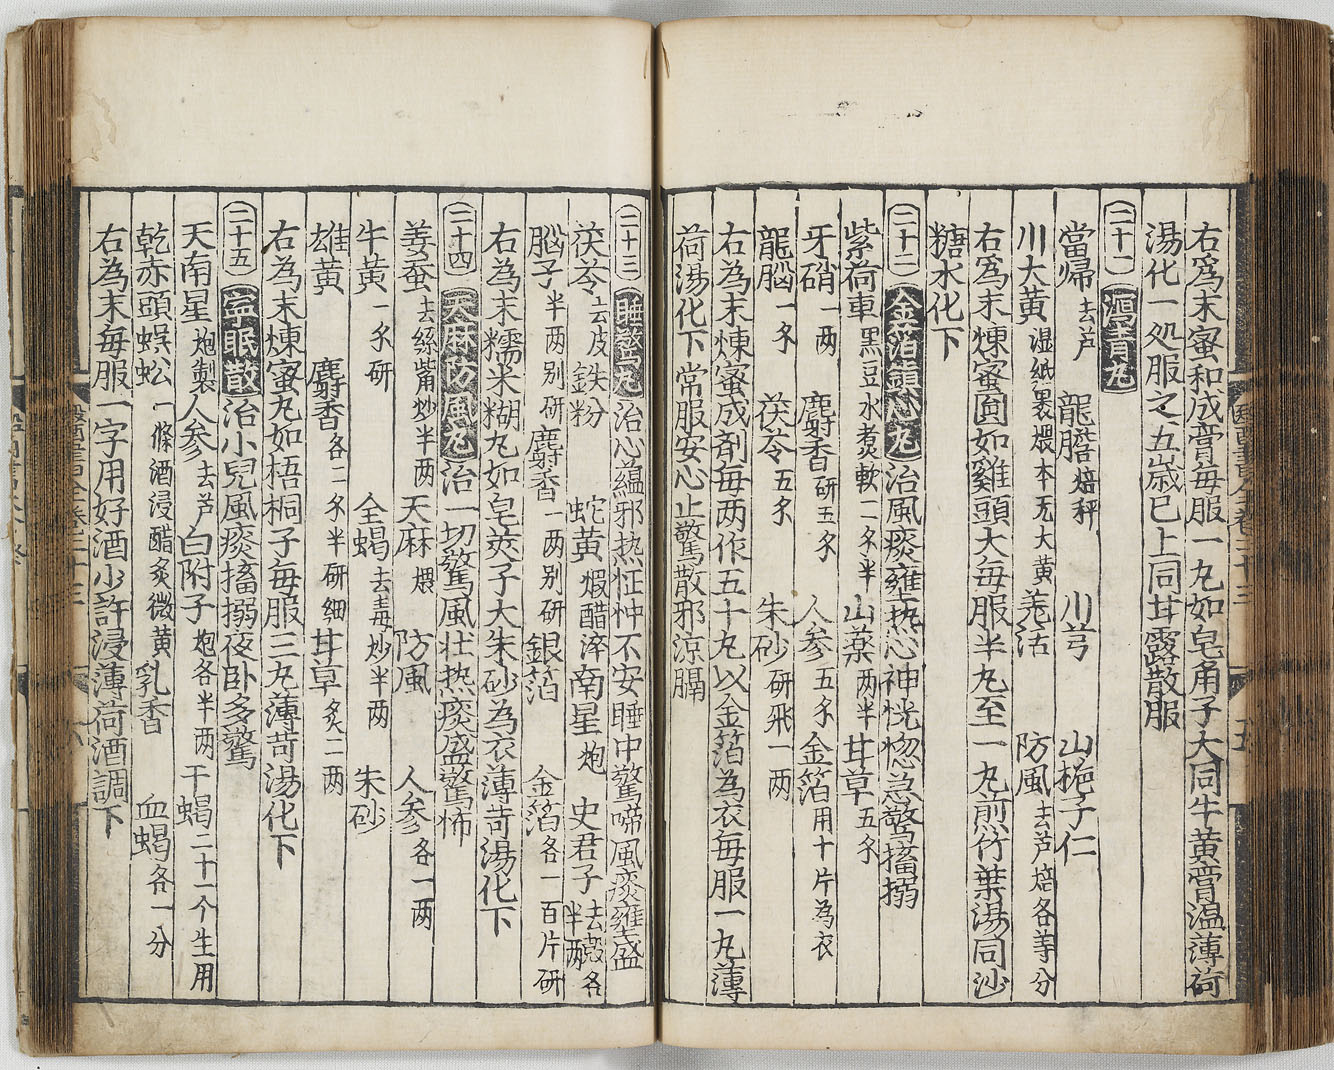 右爲末蜜和成膏每服一丸如皂角子大同牛黄膏温薄荷
湯化一処服之五歳已上同甘露散服
二十一 瀉青丸
當歸去芦 龍膽焙秤 川芎 山梔子仁
川大黄湿紙裹煨本无大黄 羗活 防風去芦焙各等分
右爲末煉蜜圓如雞頭大每服半丸至一丸煎竹葉湯同沙
糖水化下
二十二 金箔鎮心丸 治風痰壅热心神恍惚急驚搐搦
紫荷車黒豆水煮軟一多半 山薬两半 甘草五多
牙硝一两 麝香研五多 人参五多 金箔用十片為衣
龍腦一多 茯苓五多 朱砂研飛一两
右為末煉蜜成剤每两作五十丸以金箔為衣每服一丸薄
荷湯化下常服安心止驚散邪涼膈
二十三 睡驚丸 治心蘊邪热怔忡不安睡中驚啼風痰壅盛
茯苓去皮 鉄粉 蛇黄煆醋淬 南星炮 史君子去殼各半两
腦子半两别研 麝香一两别研 銀箔 金箔各一百片研
右為末糯米糊丸如皂莢子大朱砂為衣薄苛湯化下
二十四 天麻防風丸 治一切驚風壮热痰盛驚怖
姜蚕去絲觜炒半两 天麻煨 防風 人参各一两
牛黄一多研 全蝎去毒炒半两 朱砂
雄黄 麝香各二多半研細 甘草炙二两
右為末煉蜜丸如梧桐子每服三丸薄苛湯化下
二十五 寧眠散 治小兒風痰搐搦夜卧多驚
天南星炮製 人参去芦 白附子炮各半两 干蝎二十一个生用
乾赤頭蜈蚣一條酒浸醋炙微黄 乳香 血蝎各一分
右為末每服一字用好酒少許浸薄荷酒調下